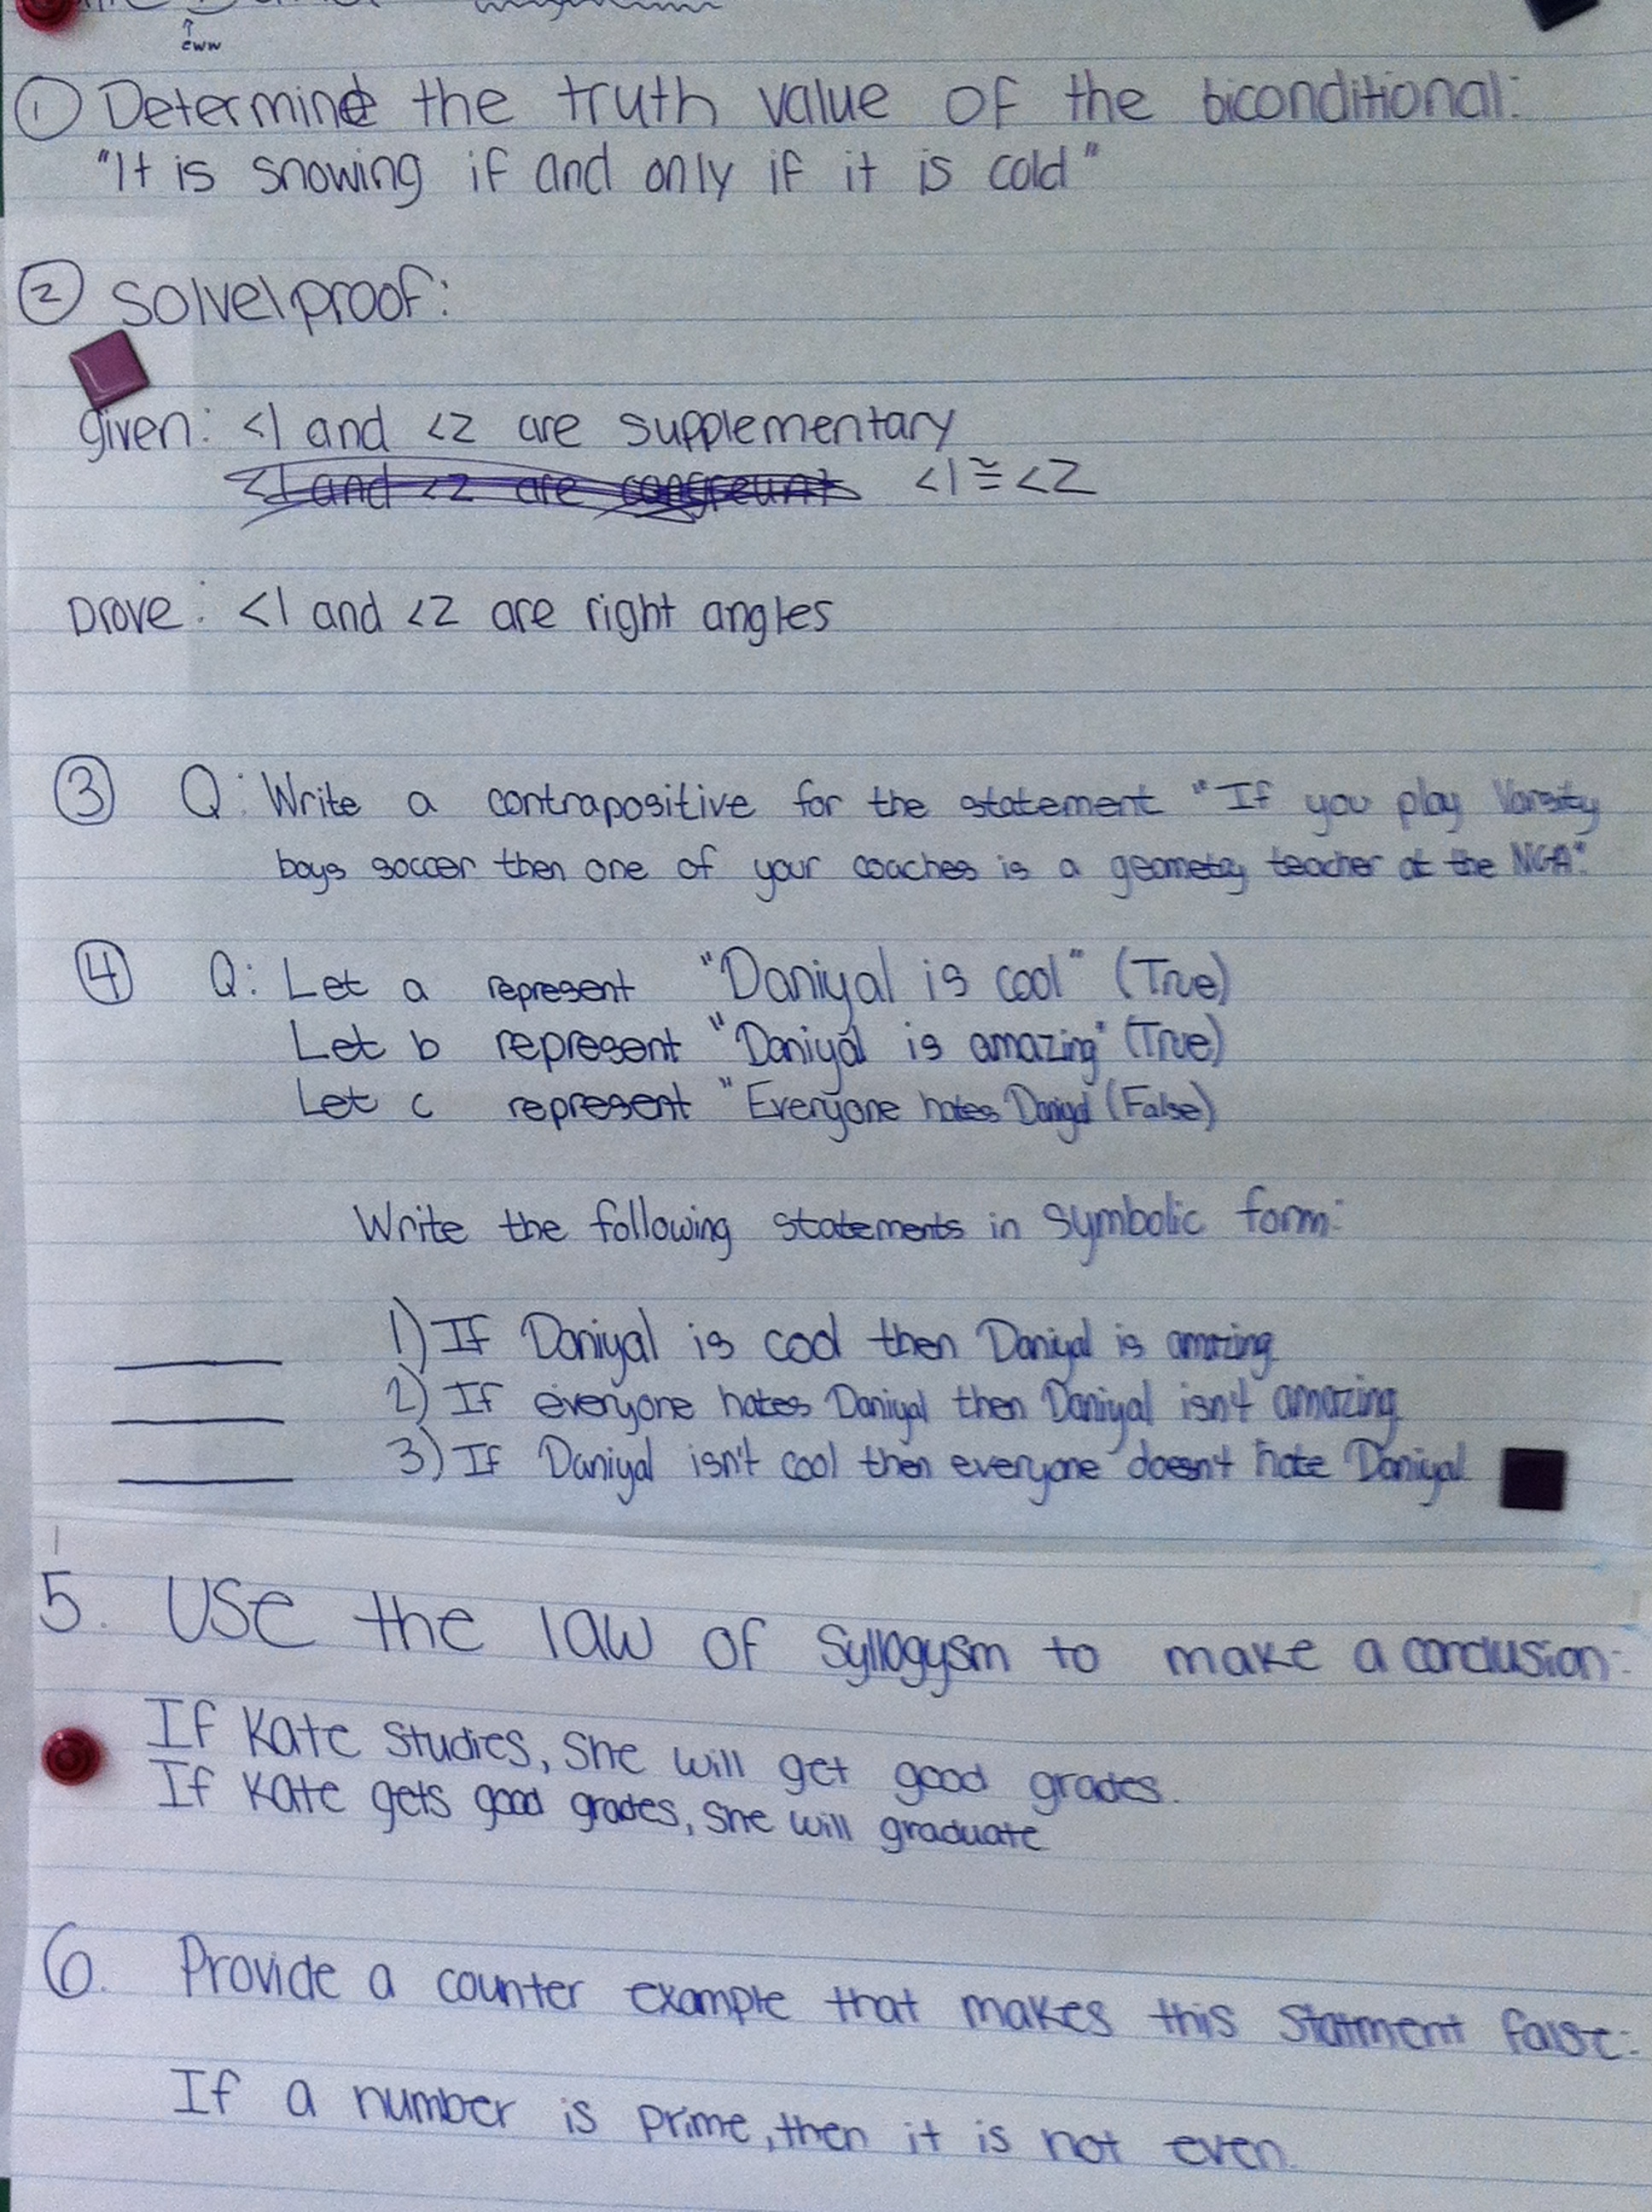 eww
① Determine the truth value of the biconditional:
"It is snowing if and only if it is cold"
② Solve/proof:
given: <1 and <2 are supplementary
<1 and <2 are congreunt <1 ≅ <2
prove: <1 and <2 are right angles
③ Q: Write a contrapositive for the statement "If you play Varsity
boys soccer then one of your coaches is a geometry teacher at the NGA".
④ Q: Let a represent "Daniyal is cool" (True)
Let b represent "Daniyal is amazing" (True)
Let c represent "Everyone hates Daniyal (False)
Write the following statements in symbolic form:
1) If Daniyal is cool then Daniyal is amazing
2) If everyone hates Daniyal then Daniyal isn't amazing
3) If Daniyal isn't cool then everyone doesn't hate Daniyal
5. Use the law of Syllogysm to make a conclusion:
If Kate studies, she will get good grades.
If Kate gets good grades, she will graduate
6. Provide a counter example that makes this statment false:
If a number is prime, then it is not even.